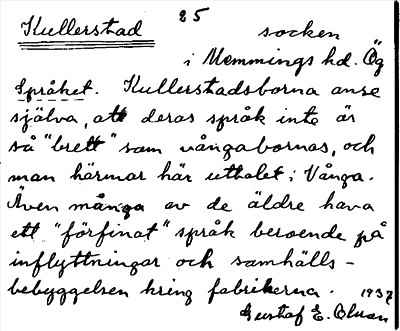 25
Kullerstad socken
i Memmings hd. Ög
Språket. Kullerstadsborna anse
själva, att deras språk inte är
så "brett" som vångabornas, och
man härmar här uttalet i Vånga.
Även många av de äldre hava
ett "förfinat" språk beroende på
inflyttningar och samhälls-
bebyggelsen kring fabrikerna. 1937
Gustaf E.